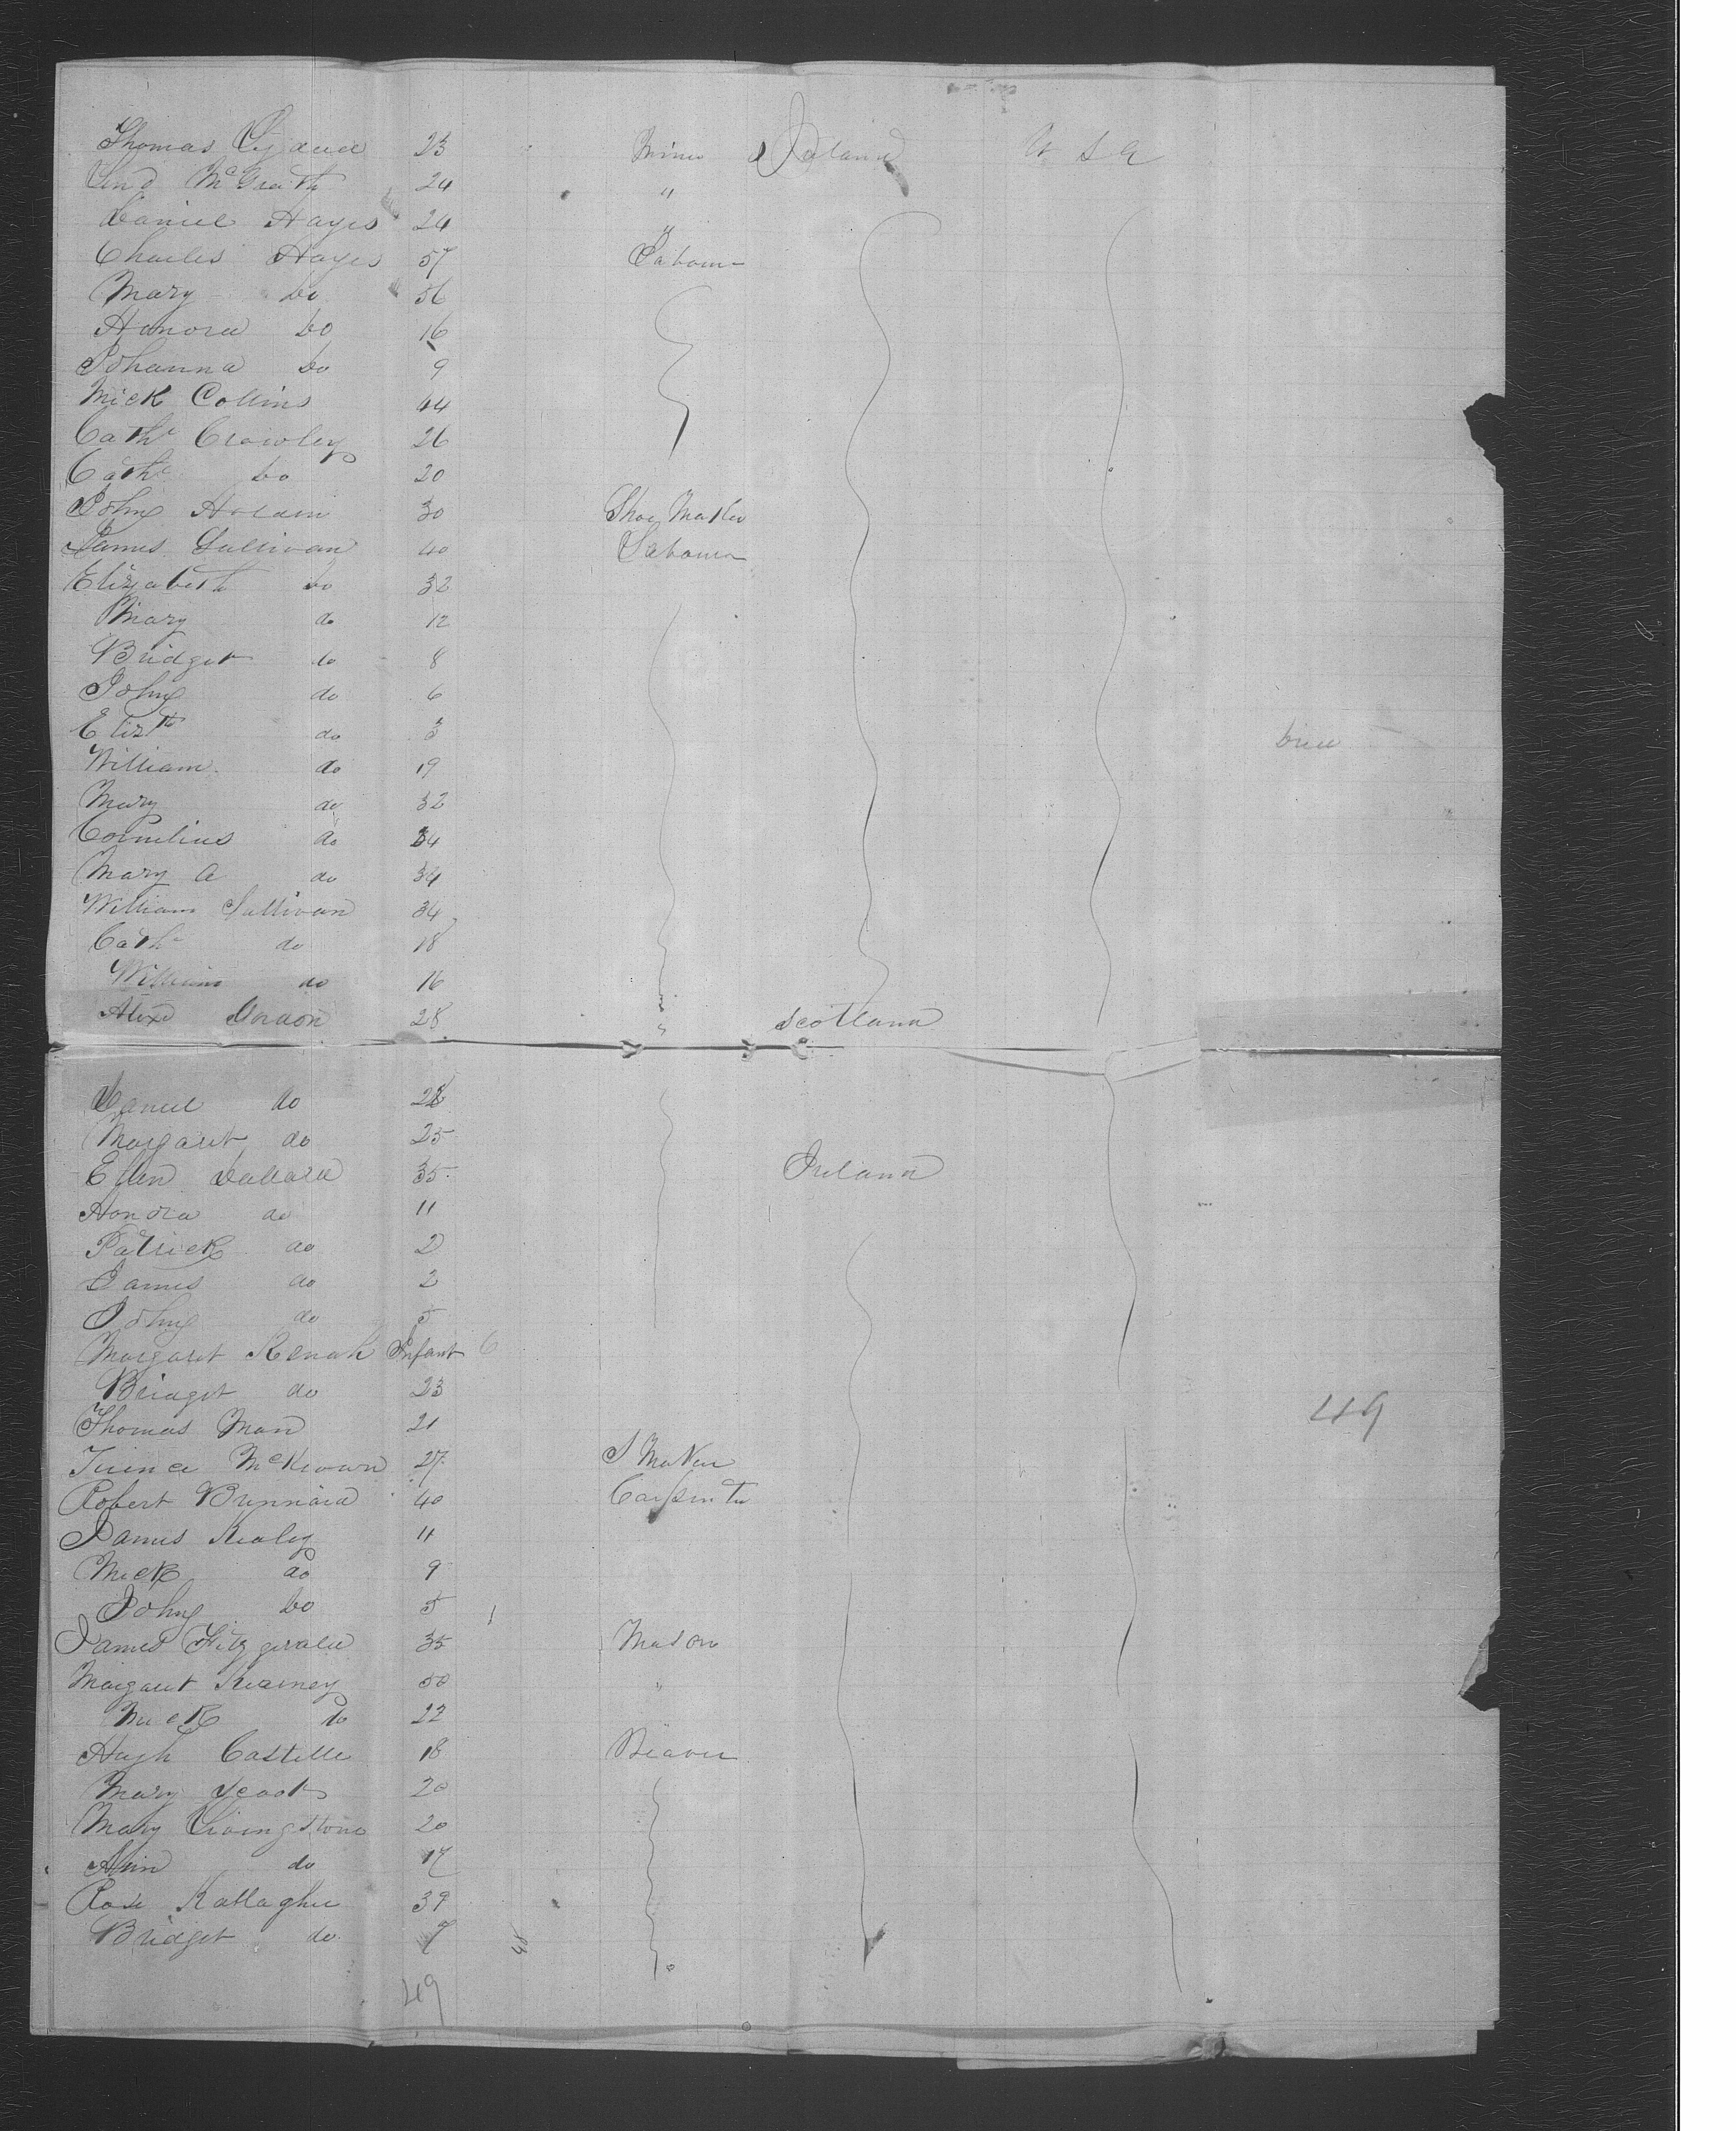 Thomas 23 Miner Ireland U S A
McGrath 24 "
Daniel Hayes 24 "
Charles Hayes 57 Labourer
Mary Do 56
Honora Do 16
Johanna Do 9
Mick Collins 44
Cathe Crowley 26
Cathe Do 20
John Holden 30 Shoe Maker
James Sullivan 40 Labourer
Elizabeth Do 32
Mary do 12
Bridget do 8
John do 6
Elizth do 3
William do 19
Mary do 32
Cornelius do 34
Mary A do 34
William Sullivan 34
Cathe do 18
William do 16
Alexd Gordon 28 " Scotland
Daniel do 28
Margaret do 25
Ellen 35 Ireland
Honora do 11
Patrick do 2
James do 2
John do 5
Margaret Infant 6
Bridget do 23
Thomas Man 21
49
McKeown 27 S Maker
Robert 40 Carpenter
James Kealey 11
Mick do 9
John Do 5
James Fitzgerald 35 Mason
Margaret Kearney 50 "
Mick do 22
Hugh Castelle 18 Weaver
Mary Scoot 20
Mary Livingstone 20
Ann do 17
Rose Kallagher 39
Bridget do 7 48
49